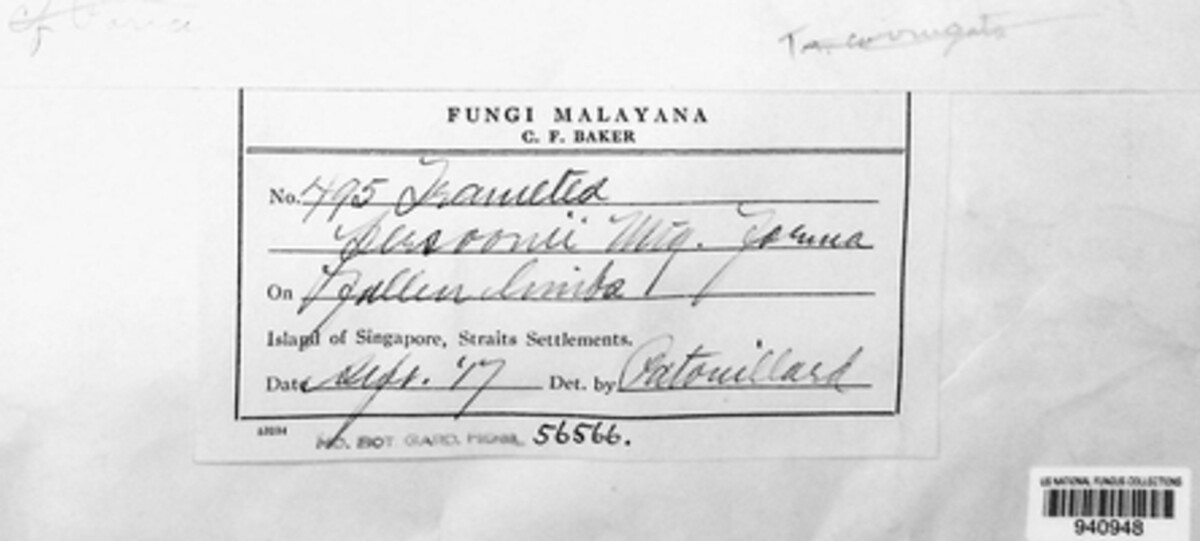 Tr. corrugata
FUNGI MALAYANA
C. F. BAKER
No. 495 Trametes
Persoonii Mtg. forma
On Fallen limbs
Island of Singapore, Straits Settlements.
Date Sept. '17 Det. by Patouillard
MO. BOT GARD. HERB. 56566.
US NATIONAL FUNGUS COLLECTIONS
940948